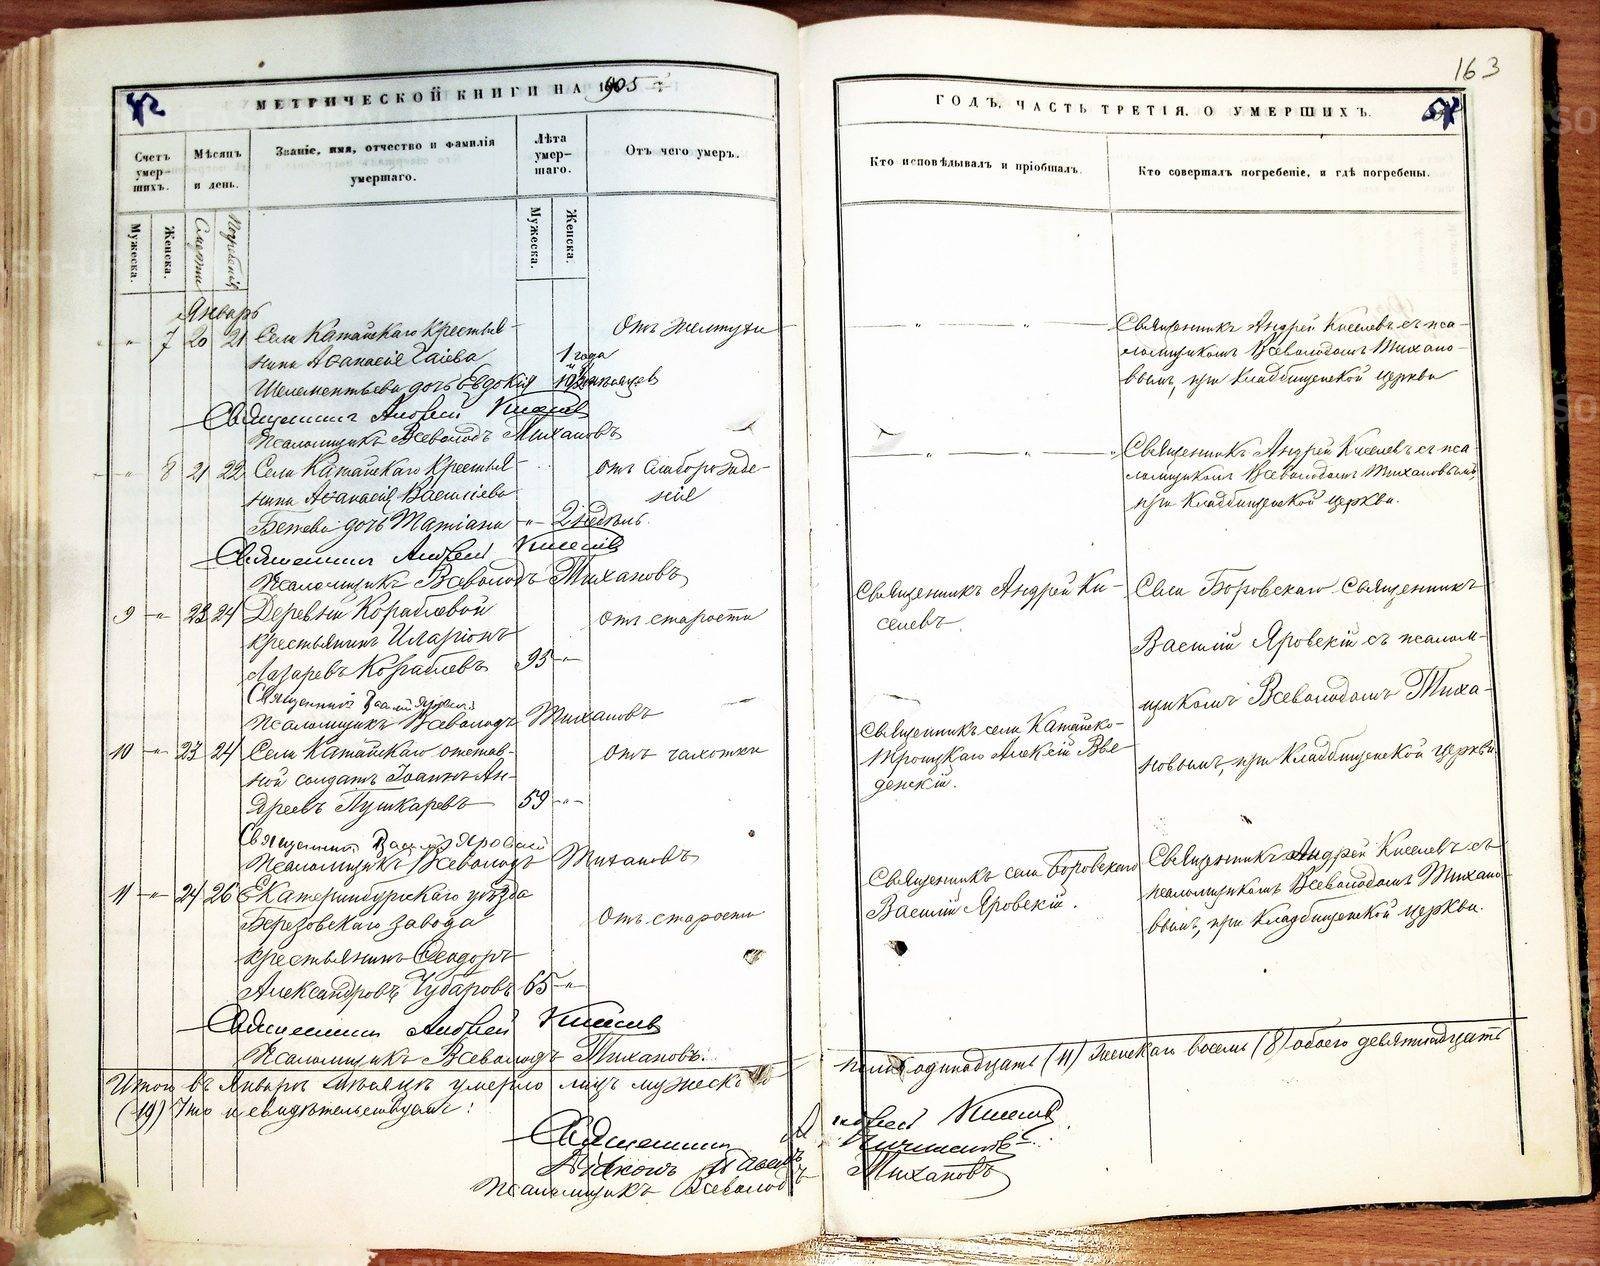 163
МЕТРИЧЕСКОЙ КНИГИ НА 1905
ГОДЪ, ЧАСТЬ ТРЕТІЯ, О УМЕРШИХЪ.
Счетъ умерших.
Мѣсяцъ и день.
Званіе, имя, отчество и фамилія умершаго.
Лѣта умершаго.
Отъ чего умеръ.
Кто исповѣдывалъ и пріобщалъ.
Кто совершалъ погребеніе, и гдѣ погребены.
Мужеска.
Женска.
Смерти
Погребенія
Мужеска.
Женска.
Январь
" 7 20 21 Села Катайскаго крестья-
нина Афанасія
дочь Евдокія
1 года
мѣсяцев
Отъ желтухи
Священникъ Андрей Киселевъ съ пса-
ломщикомъ Всеволодомъ Тихано-
вымъ, при кладбищенской церкви
Священникъ Андрей Киселевъ
Псаломщикъ Всеволодъ Тихановъ
" 8 21 22 Села Катайскаго крестья-
нина Афанасія Василіева
дочь Татіана " 2 недѣль.
отъ слаборожде-
нія
Священникъ Андрей Киселевъ съ пса-
ломщикомъ Всеволодомъ Тихановымъ,
при кладбищенской церкви.
Священникъ Андрей Киселевъ
Псаломщикъ Всеволодъ Тихановъ
9 " 23 24 Деревни Кораблевой
крестьянинъ Иларіонъ
Лазаревъ Кораблевъ 95 "
отъ старости
Священникъ Андрей Ки-
селевъ
Села Боровскаго священникъ
Василій Яровскій съ псалом-
щикомъ Всеволодомъ Тиха-
новымъ, при кладбищенской церкви.
Священникъ Василій Яровскій
Псаломщикъ Всеволодъ Тихановъ
10 " 23 24 Села Катайскаго отстав-
ной солдатъ Іоаннъ Ан-
дреевъ Пушкаревъ 59 "
Отъ чахотки
Священникъ села Катайско-
Троицкаго Алексій Вве-
денскій.
Священникъ Василій Яровскій
Псаломщикъ Всеволодъ Тихановъ
11 " 24 26 Екатеринбургскаго уѣзда
Березовскаго завода
крестьянинъ Ѳеодоръ
Александровъ Чубаровъ 65 "
Отъ старости
Священникъ села Боровскаго
Василій Яровскій.
Священникъ Андрей Киселевъ съ
псаломщикомъ Всеволодомъ Тихано-
вымъ, при кладбищенской церкви.
Священникъ Андрей Киселевъ
Псаломщикъ Всеволодъ Тихановъ.
Итого въ Январѣ мѣсяцѣ умерло лицъ мужескаго
пола одинадцать (11) женскаго восемь (8) обоего девятнадцать
(19) Что и свидѣтельствуемъ:
Священникъ Андрей Киселевъ
Діаконъ Павелъ
Псаломщикъ Всеволодъ Тихановъ